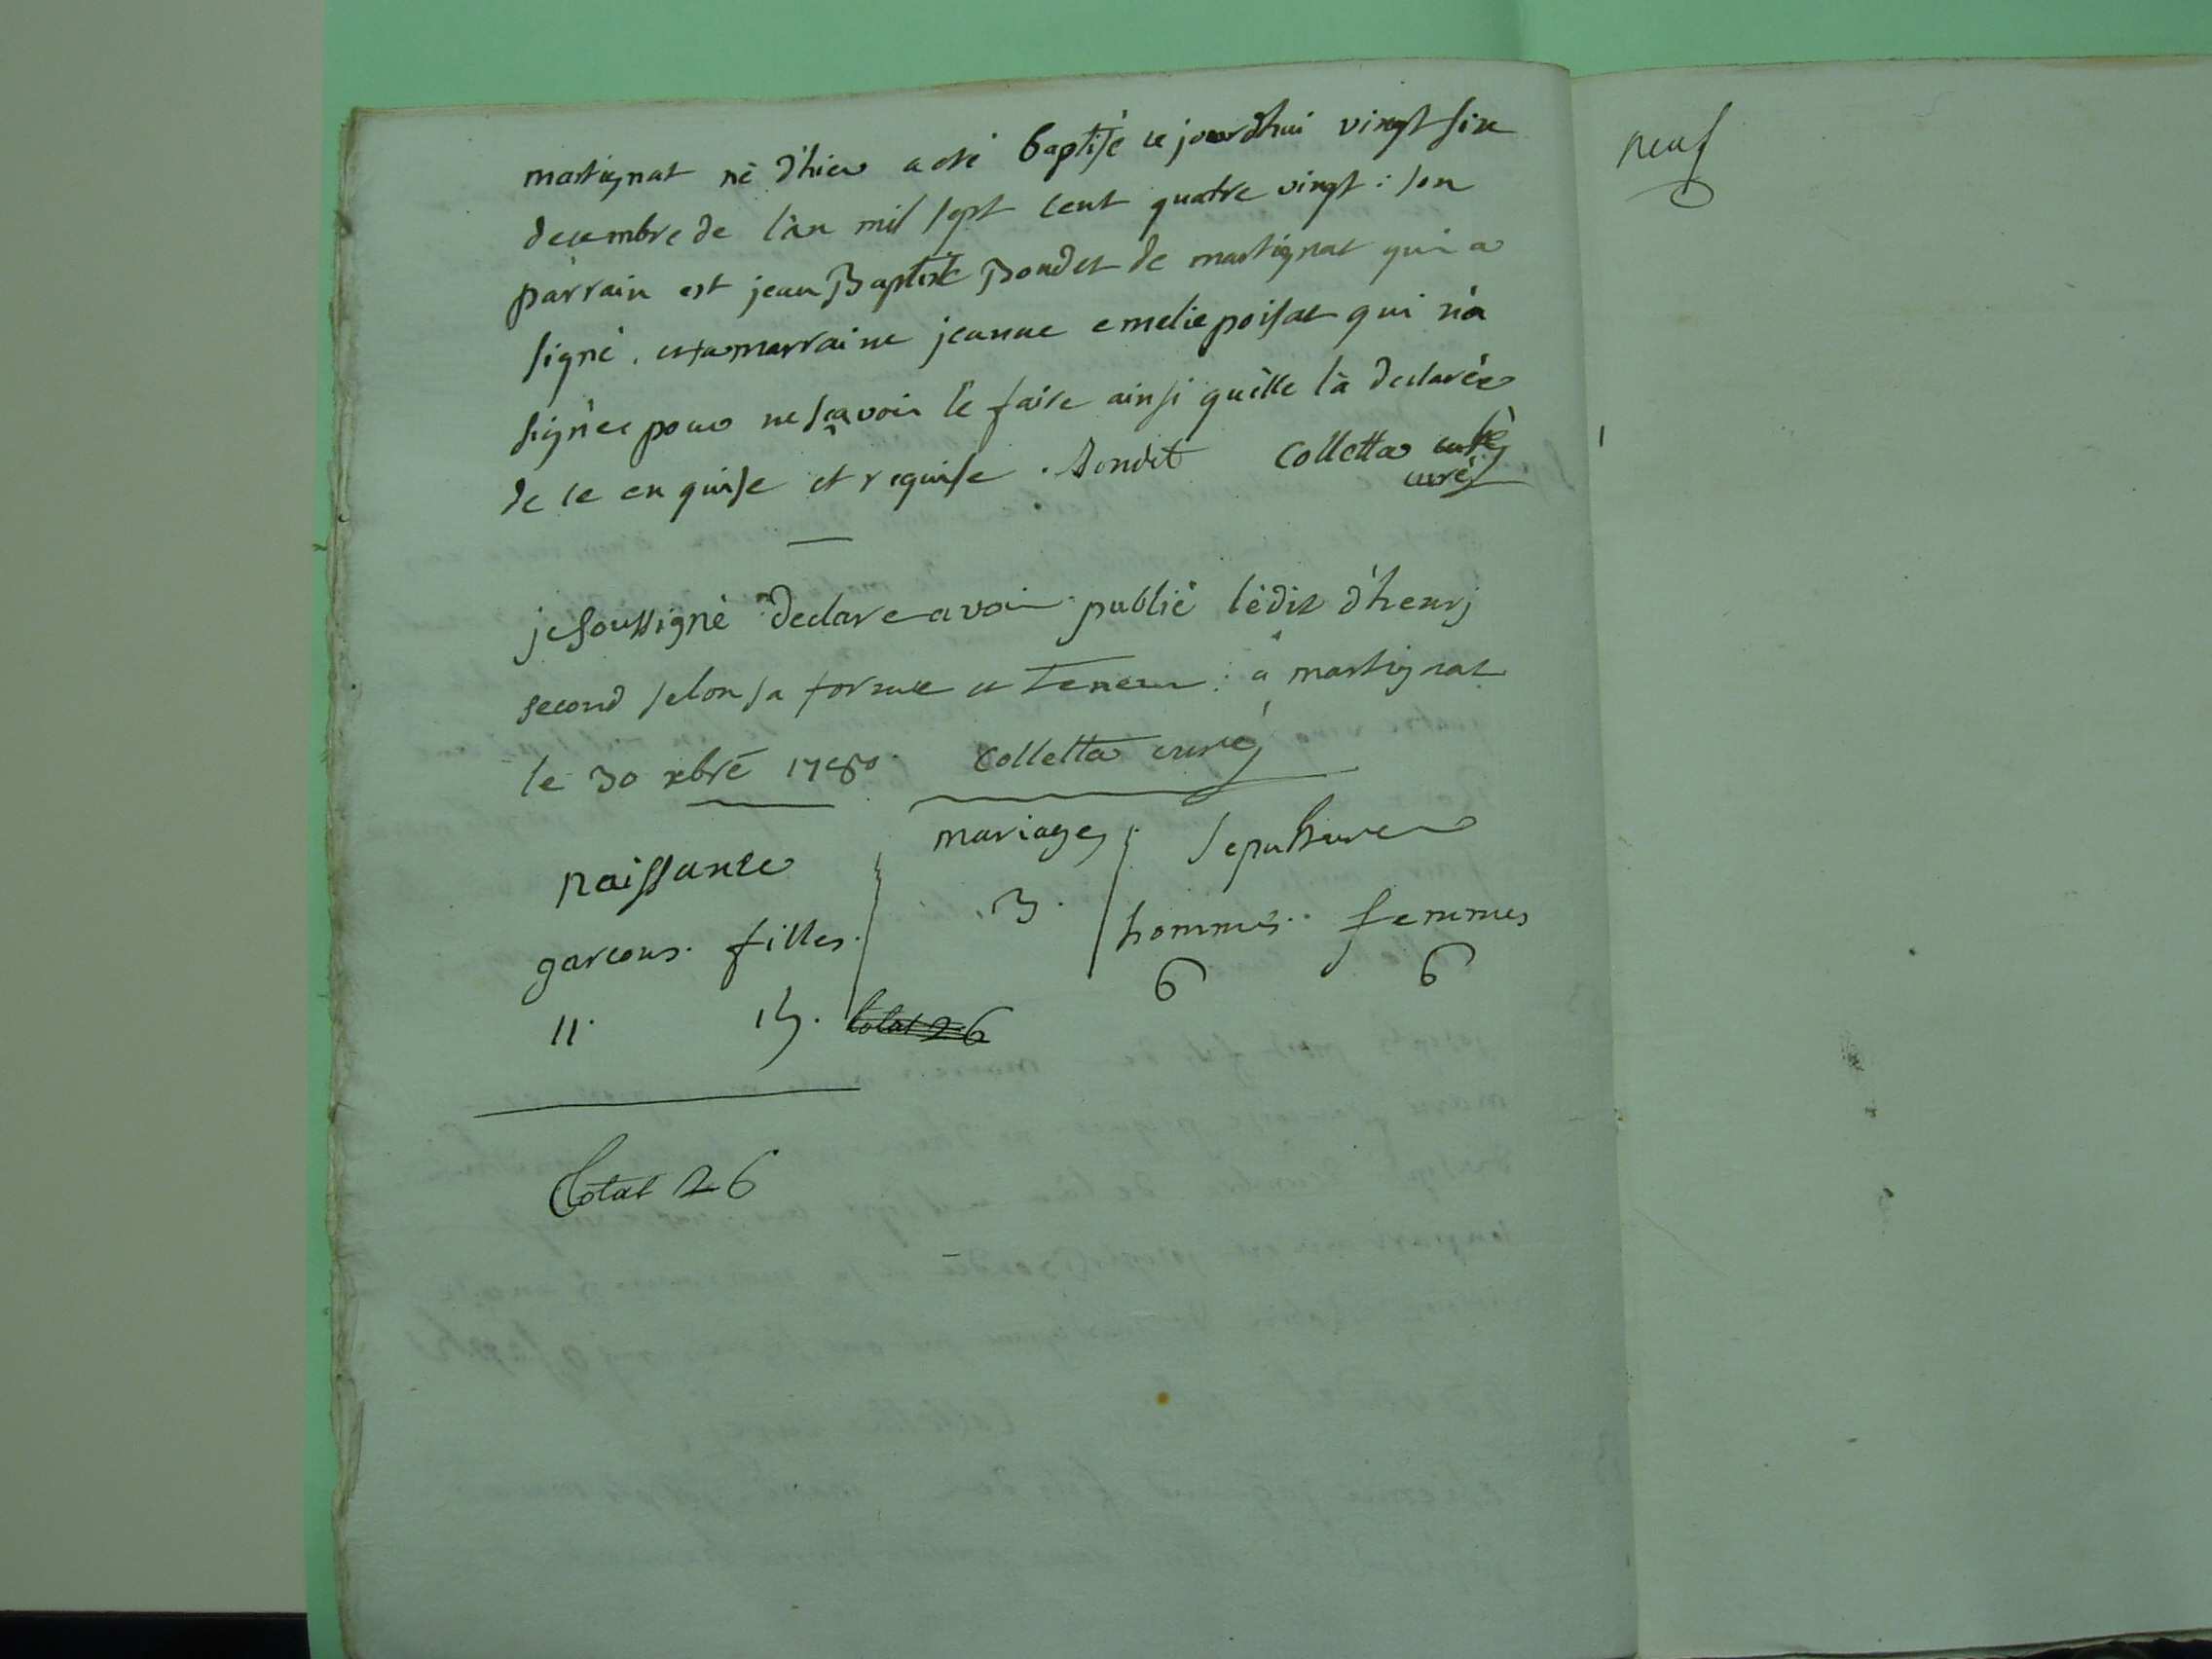 martignat né d'hier a été baptisé ce jourdhui vingt six
decembre de l'àn mil sept cent quatre vingt : son
parrain est jean Baptiste Bondet de martignat qui a
signé. et sa marraine jeanne emelie poisat qui n'a
signée pour ne sçavoir le faire ainsi qu'elle l'à declarée
de ce en quise et requise . Bondet Colletta curé
curé
je soussigné declare avoir publié l'édit d'henrj
second selon sa forme et teneur : a martignat
le 30 xbre 1780. Colletta curé
naissance mariages sepulture
garcons. filles. 3. hommes.. femmes
11. 15. total 26 6 6
Total 26
neuf